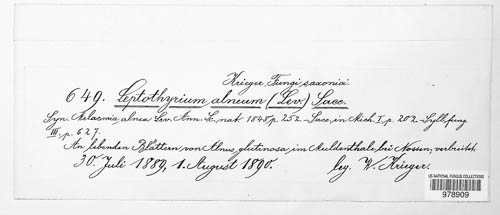 Krieger, Fungi saxonici.
649. Leptothyrium alneum (Lév.) Sacc.
Syn. Melasmia alnea Lév. Ann. Sc. nat. 1845 p. 252. – Sacc. in Mich. I, p. 202. – Syll. fung.
III, p. 627.
An lebenden Blättern von Alnus glutinosa im Muldenthale bei Nossen, verbreitet.
30. Juli 1889, 1. August 1890. leg. W. Krieger.
US NATIONAL FUNGUS COLLECTIONS
978909